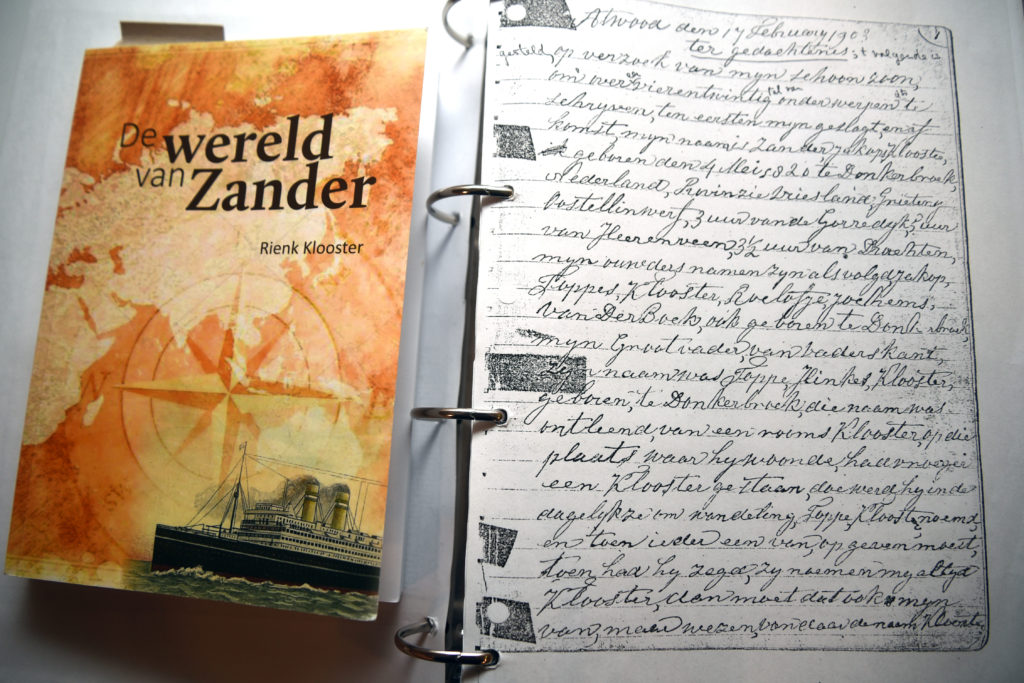 De wereld
van Zander
Rienk Klooster
N
Atwood den 17 February 1903
ter gedachtenis, 't volgende is
gesteld, op verzoek van myn schoon zoon,
om over een vierentwintig tal van onderwerpen iets te
schryven, ten eersten myn geslagt en af
komst, myn naam is Zander Jakops Klooster,
geboren den 4 Mei 1820 te Donkerbroek,
Nederland, Provinzie Vriesland Grieteny
Oostellinwerf, 3 uur van de Gorredyk, 5 uur
van Heerenveen, 3½ uur van Drachten,
myn ouwders namen zyn als volgd Jakop,
Foppes, Klooster, Roelofje, Jochems,
van Der Boek, ook geboren te Donkerbroek
myn Grootvader, van vaders kant,
zyn naam was Foppe, Hinkes, Klooster,
geboren, te Donkerbroek, die naam was
ontleend, van een rooms Klooster, op die
plaats waar hy woonde, had vroeger
een Klooster gestaan, doe werd hy in de
dagelykze om wandeling, Foppe Klooster noemd,
en toen ieder een van, op geven moest,
toen had hy zegd, zy noemen my altyd
Klooster, dan moet dat ook myn
van, maar wezen, van daar de naam Klooster,